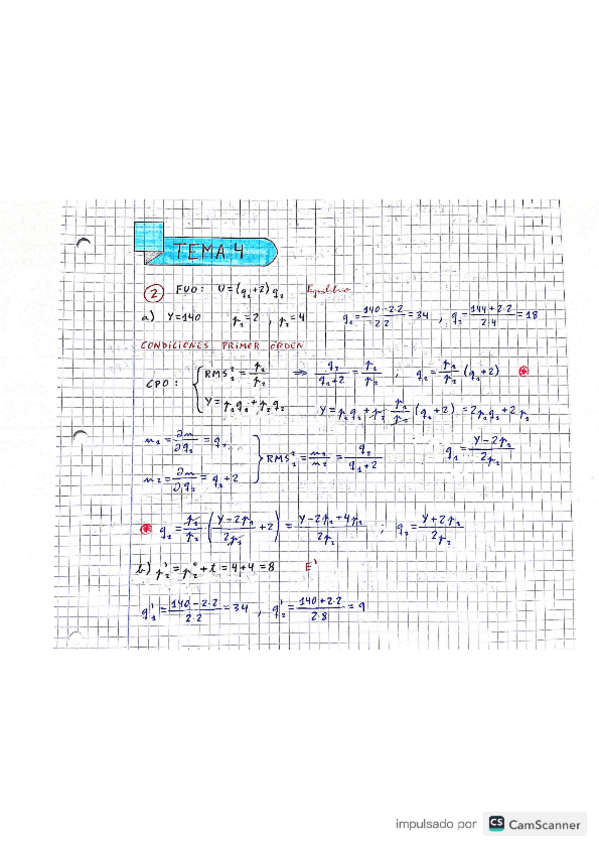 TEMA 4
② FUO: U=(q₁+2)q₂ Equilibrio
a) Y=140 p₁=2 , p₂=4 q₁=(140-2·2)/(2·2)=34 , q₂=(144+2·2)/(2·4)=18
CONDICIONES PRIMER ORDEN
CPO: { RMS²₁=p₁/p₂ ⇒ q₂/(q₁+2)=p₁/p₂ ; q₂=p₁/p₂(q₁+2) *
Y=p₁q₁+p₂q₂ Y=p₁q₁+p₂ p₁/p₂(q₁+2)=2p₁q₁+2p₁
u₁=∂u/∂q₁=q₂ } RMS²₁=u₁/u₂=q₂/(q₁+2) q₁=(Y-2p₁)/(2p₁)
u₂=∂u/∂q₂=q₁+2
* q₂=p₁/p₂·((Y-2p₁)/(2p₁)+2)=(Y-2p₁+4p₁)/(2p₂) ; q₂=(Y+2p₁)/(2p₂)
b) p₂'=p₂⁰+t=4+4=8 E'
q₁'=(140-2·2)/(2·2)=34 , q₂'=(140+2·2)/(2·8)=9
impulsado por CS CamScanner